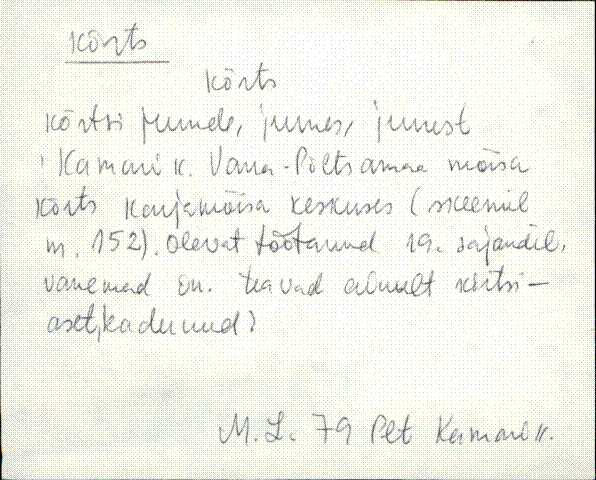 kõrts
kõrts
kõrtsi juurde, juures, juurest
Kamari k. Vana-Põltsamaa mõisa
kõrts karjamõisa keskuses (skeemil
m. 152). Olevat töötanud 19. sajandil,
vanemad in. teavad ainult kõrtsi-
aset, kadunud?
M. L. 79 Plt Kamari k.